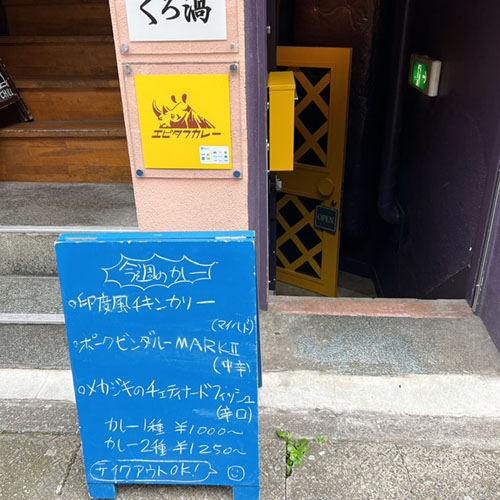 くろ渦
エピタフカレー
OPEN
今週のカレー
印度風チキンカリー
(マイルド)
ポークビンダルー MARKⅡ
(中辛)
メカジキのチェティナードフィッシュ
(辛口)
カレー1種 ¥1000〜
カレー2種 ¥1250〜
テイクアウトOK!